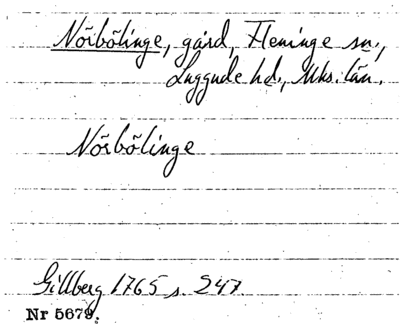 Nõrbõlinge, gård, Fleninge sn.,
Luggude hd., Mks. län.
Nõrbõlinge
Gillberg 1765 s. 247.
Nr 5679.